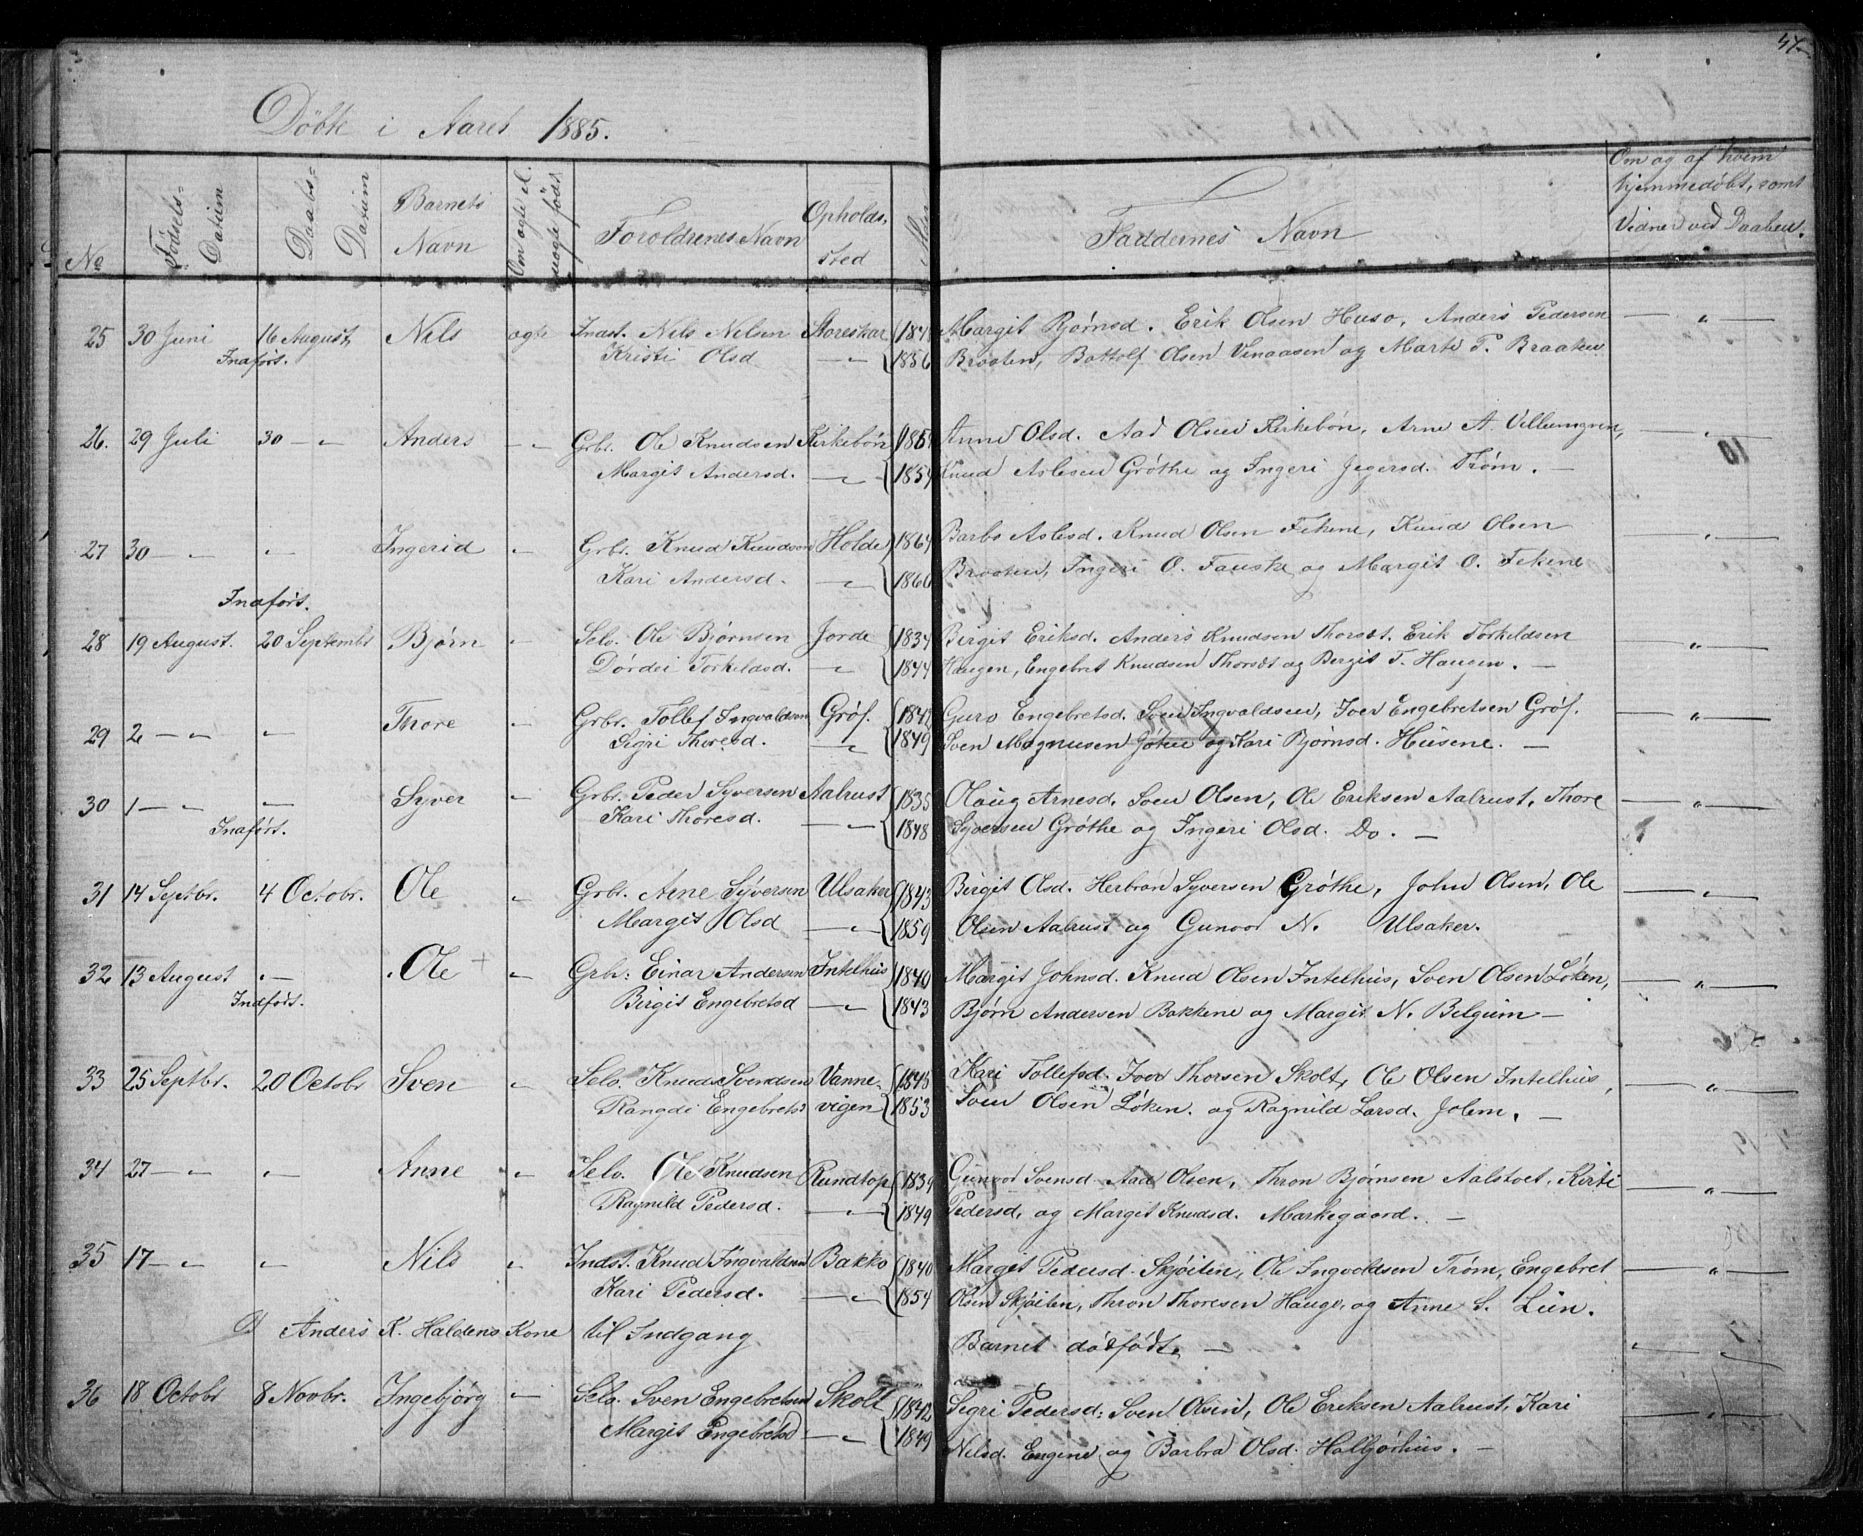 47.
Döbte i Aaret 1885.
No
Fødsels-
Datum
Daabs-
Datum
Barnets
Navn
Om ægte el.
uægte født
Foroldrenes Navn
Opholds-
sted
Faddernes Navn
Om og af hvem
hjemmedøbt, samt
Vidner ved Daaben.
25 30 Juni 16 August Nils ægte Indst. Nils Nelsen Storeskar Margit Bjørnsd. Erik Olsen Huso, Anders Pedersen — „ —
Indført. Kristi Olsd — „ — 1856 Braaten, Bottolf Olsen Vinaasen og Marte P. Braaten
26. 29 Juli 30 — „ Anders — „ Grbr. Ole Knudsen Kirkebøn Anne Olsd. Aad Olsen Kirkebøn, Arne A. Villumgven, — „ —
10
Margit Andersd. — „ — Knud Aslesen Grøthe og Ingeri Jegersd. Trøm. —
27 30 — „ „ Ingerid „ Grbr. Knud Knudsen Holde 1864 Barbo Aslesd. Knud Olsen Fekene, Knud Olsen — „ —
Kari Andersd. — „ 1866 Braaten, Ingeri O. Fauske og Margit O. Fekene
Indført.
28 19 August. 20 Septembr Bjørn „ Selv. Ole Bjørnsen Jorde 1834 Birgit Eriksd. Anders Knudsen Thorset. Erik Torkeldsen — „ —
Dordei Torkeldsd. — „ 1844 Haugen, Engebret Knudsen Thorset og Bergit T. Haugen. —
29 2 — „ „ Thore „ Grbr. Tollef Ingvaldsen Grøf. 1842 Guro Engebretsd. Sven Ingvaldsen, Iver Engebretsen Grøf. — „ —
Sigri Thoresd. — „ 1849 Sven Magnusen Jøten og Kari Bjørnsd. Husene. —
30 1 — „ „ Syver „ Grbr. Peder Syversen Aalrust 1835 Olaug Arnesd. Sven Olsen, Ole Eriksen Aalrust, Thore — „ —
Indført. Kari Thoresd. — „ — 1848 Syversen Grøthe og Ingeri Olsd. Do. —
31 14 Septbr. 4 Octobr. Ole „ Grbr. Arne Syversen Ulsaker 1843 Birgit Olsd. Herbran Syversen Grøthe, John Olsen, Ole — „ —
Margit Olsd — „ — 1859 Olsen Aalrust og Gunvor N. Ulsaker.
32 13 August „ Ole + „ Grbr: Einar Andersen Intelhus 1840 Margit Johnsd. Knud Olsen Intelhus, Sven Olsen Løken, — „ —
Indført. Birgit Engebretsd — „ — 1843 Bjørn Andersen Bakkene og Margit N. Belgum —
33 25 Septbr. 20 Octobr Sven „ Selv. Knud Svendsen Vanne- 1845 Kari Tollefsd. Iver Thorsen Skolt, Ole Olsen Intelhus, — „ —
Rangdi Engebretsd vigen 1853 Sven Olsen Løken. og Ragnild Larsd. Jolem. —
34 27 — „ „ Anne „ Selv. Ole Knudsen Rundtop 1839 Gunvor Svensd. Aad Olsen, Thron Bjørnsen Aalstvet, Kirti — „ —
Ragnild Pedersd. — „ — 1849 Pedersd, og Margit Knudsd. Markegaard. —
35 17 — „ „ Nils „ Indst. Knud Ingvaldsen Bakko 1840 Margit Pedersd. Skjøiten, Ole Ingvoldsen Trøm, Engebret — „ —
Kari Pedersd. — „ — 1854 Olsen Skjøiten, Thron Thoresen Hauge, og Anne S. Lien.
Anders K. Haldens Kone til Indgang Barnet dødfødt. — „ —
36 18 Octobr 8 Novbr. Ingebjørg — Selv. Sven Engebretsen Skolt 1842 Sigri Pedersd: Sven Olsen, Ole Eriksen Aalrust, Kari — „ —
Margit Engebretsd — „ — 1849 Nilsd. Engene og Barbra Olsd. Halbjørhus. —